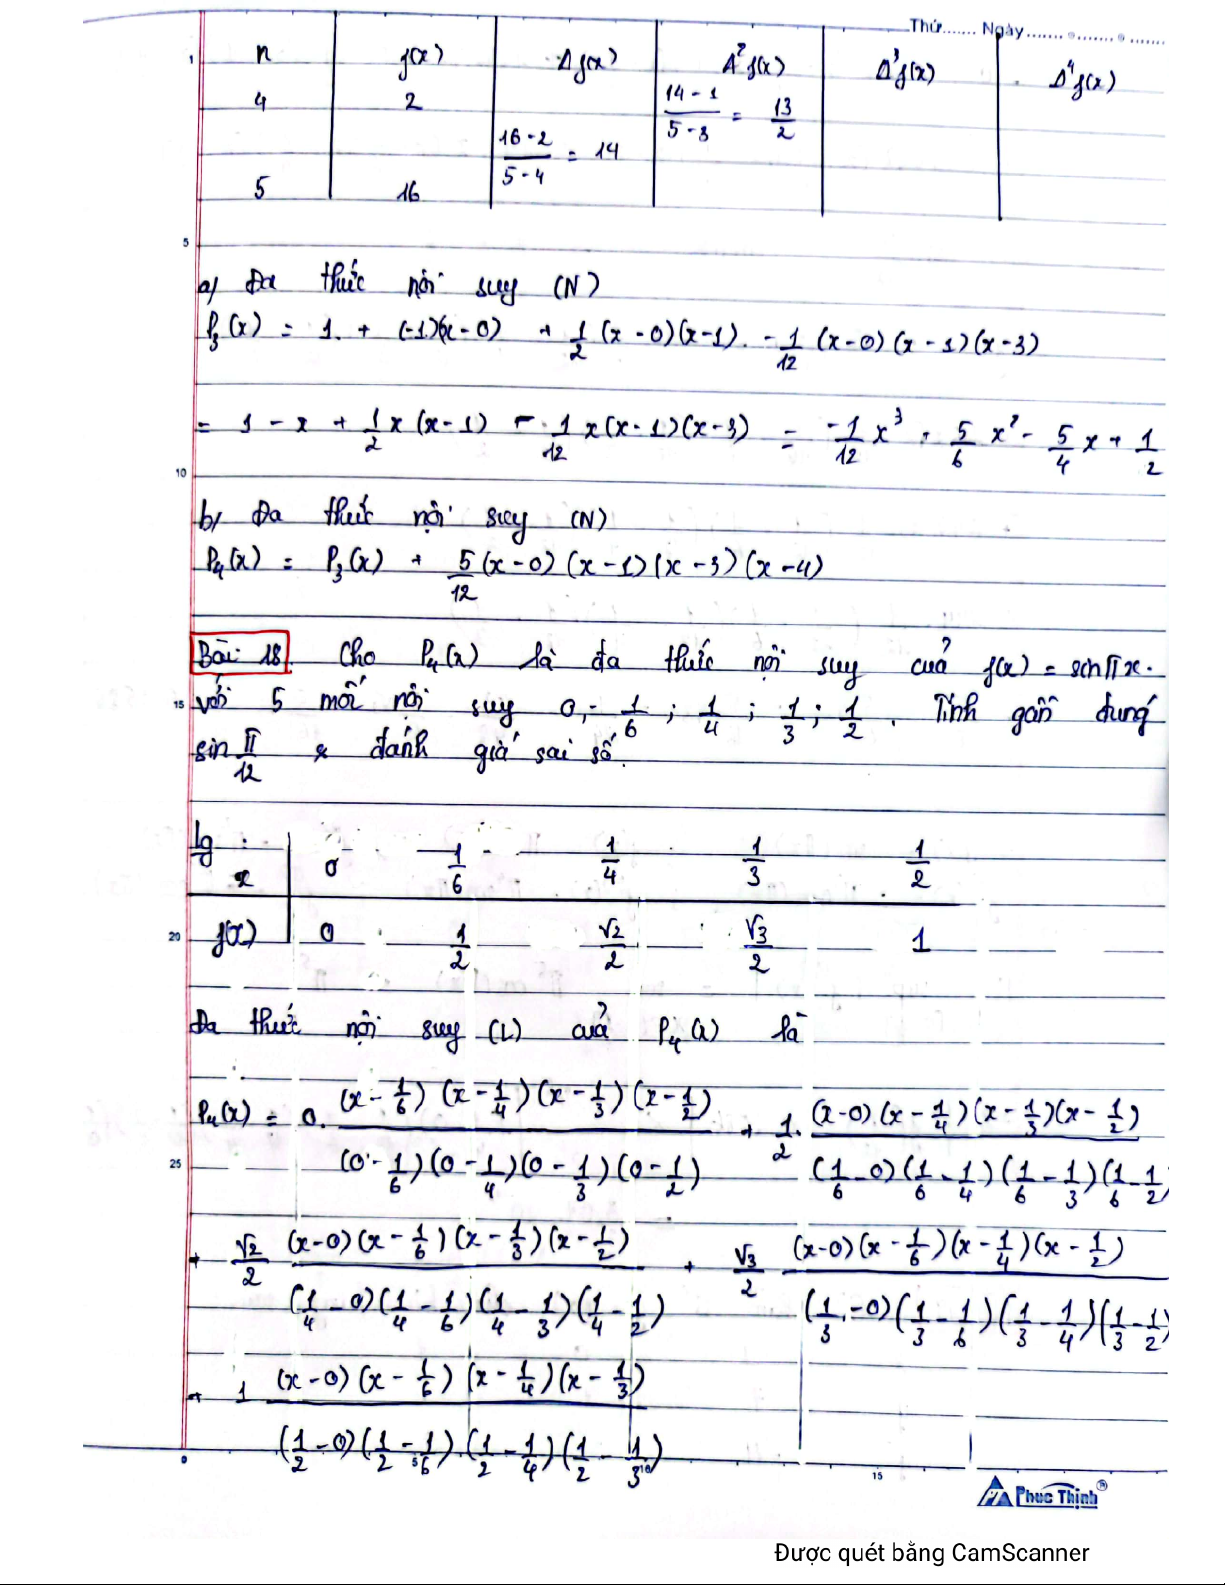 Thứ....... Ngày.......................
n f(x) Δf(x) Δ²f(x) Δ³f(x) Δ⁴f(x)
4 2 (14 - 1)/(5 - 3) = 13/2
(16 - 2)/(5 - 4) = 14
5 16
a) Đa thức nội suy (N)
P₃(x) = 1 + (-1)(x - 0) + 1/2 (x - 0)(x - 1) - 1/12 (x - 0)(x - 1)(x - 3)
= 1 - x + 1/2 x(x - 1) - 1/12 x(x - 1)(x - 3) = -1/12 x³ + 5/6 x² - 5/4 x + 1/2
b) Đa thức nội suy (N)
P₄(x) = P₃(x) + 5/12 (x - 0)(x - 1)(x - 3)(x - 4)
Bài 18. Cho P₄(x) là đa thức nội suy của f(x) = sin πx.
với 5 mốc nội suy 0, 1/6 ; 1/4 ; 1/3 ; 1/2 . Tính gần đúng
sin π/12 & đánh giá sai số.
lg :
x 0 1/6 1/4 1/3 1/2
f(x) 0 1/2 √2/2 √3/2 1
Đa thức nội suy (L) của P₄(x) là
P₄(x) = 0. (x - 1/6)(x - 1/4)(x - 1/3)(x - 1/2) / (0 - 1/6)(0 - 1/4)(0 - 1/3)(0 - 1/2) + 1/2 . (x - 0)(x - 1/4)(x - 1/3)(x - 1/2) / (1/6 - 0)(1/6 - 1/4)(1/6 - 1/3)(1/6 - 1/2)
+ √2/2 (x - 0)(x - 1/6)(x - 1/3)(x - 1/2) / (1/4 - 0)(1/4 - 1/6)(1/4 - 1/3)(1/4 - 1/2) + √3/2 (x - 0)(x - 1/6)(x - 1/4)(x - 1/2) / (1/3 - 0)(1/3 - 1/6)(1/3 - 1/4)(1/3 - 1/2)
+ 1 (x - 0)(x - 1/6)(x - 1/4)(x - 1/3) / (1/2 - 0)(1/2 - 1/6)(1/2 - 1/4)(1/2 - 1/3)
1
5
10
15
20
25
0 5 10 15
Phuc Thinh ®
Được quét bằng CamScanner